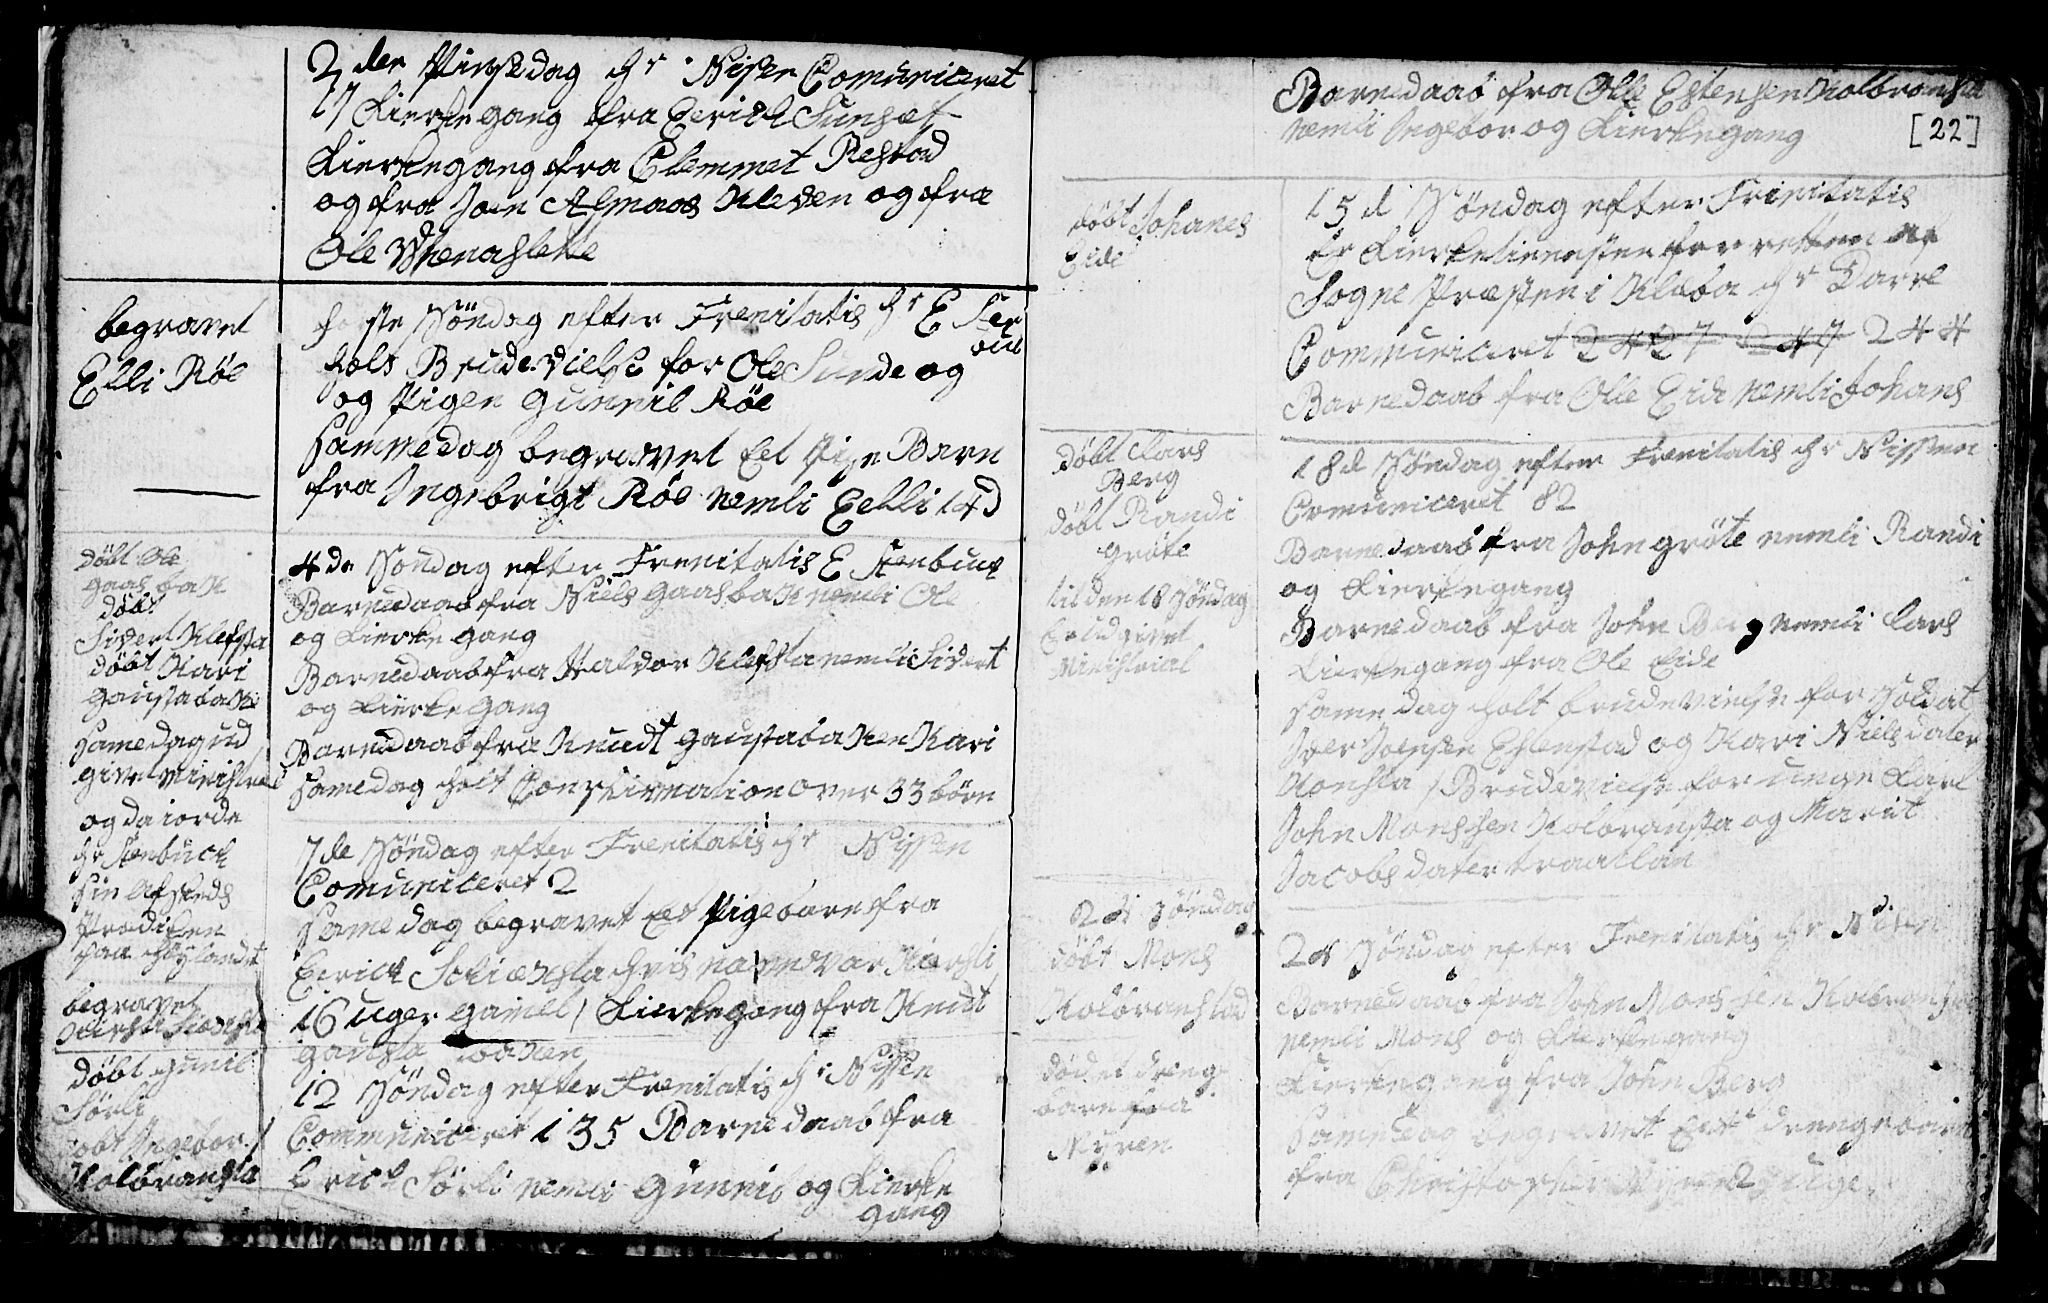 2 den Pinsedag hr Nisen Comuniceret
17 kierkegang fra Eerich Sunset
kierkegang fra Clemmet Restad
og fra Joen Aasmaas Kleven og fra
Ole Wrenaslette
begravet
Elli Röe
förste Söndag efter Trenitatis hr E Sten
buk
hols Brudevielse for Ole Sunde og
og Pigen Gunnil Röe
samme dag begravet Eet Pige Barn
fra Ingebrigt Röe nemli Eelli 14 d
döbt Ole
gaasbaK
döbt
Sivert Klefsta
döbt Kari
gaustabaKe
same dag ud
givet ministrial
og da iorde
hr Stenbuck
sin afskeds
Prediken
paa Höylandet
4de Söndag efter Trenitatis E Stenbuck
Barnedaab fra Niels gaasbaK nemli Ole
og kierke gang
Barnedaab fra Haldor Klefsta nemli Sivert
og kierke gang
Barnedaab fra Knudt gaustabaKen Kari
same dag holt Confirmation over 33 börn
7de Söndag efter Trenitatis hr Nissen
Comuniceret 2
same dag begravet Eet Pigebarn fra
Eerick hvis navn var Kirsti
16 uger gamel / kierkegang fra Knut
gausta baKen
begravet
Kirsti
döbt gunil
Sörli
döbt Ingebor
Kolbransta
12 Söndag efter Trenitatis hr Nissen
Communiceret 135 Barnedaab fra
Erick Sörli nemli Gunnil og kierke
gang
Barnedaab fra Olle Estensen Kolbransta
nemli Ingebor og kierkegang
[22]
döbt Johanes
Eide
15d Söndag efter Trinitatis
Er kierketienesten forretten af
Sogne Præsten i Klæbo hr Darre
Communiceret 244
Barnedaab fra Olle Eide nemli Johans
döbt Lars
Berg
döbt Randi
gröte
til den 18 Söndag
Er udgivet
Ministrial
18d Söndag efter Trenitatis hr Nissen
Comuniceret 82
Barnedaab fra John gröte nemli Randi
og kierkegang
Barnedaab fra John Berg nemli Lars
kierkegang fra Ole Eide
same dag holt brudevielse for Soldat
Iver Joensen Estenstad og Kari Nielsdater
Konsta / Brudevielse for unge karl
John Monssen Kolbransta og Marit
Jacobsdater traatlan
24 Söndag
döbt Mons
Kolbranstad
död et drenge
barn fra
Myren
24 Söndag efter Trenitatis hr Nisen
Barnedaab fra John Monssen Kolbransta
nemli Mons og kierkegang
kierkegang fra John Berg
same dag begravet Eet drengebarn
fra Christopher Myren 2 uge